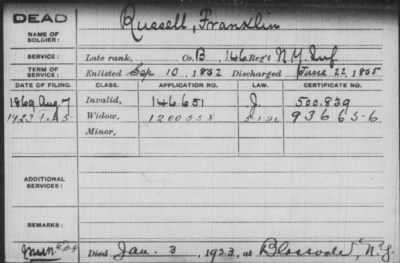 DEAD
NAME OF SOLDIER:
Russell, Franklin
SERVICE:
Late rank, Co. B, 146 Reg't N.Y. Inf
TERM OF SERVICE:
Enlisted Sep. 10, 1862 Discharged June 22, 1865
DATE OF FILING. CLASS. APPLICATION NO. LAW. CERTIFICATE NO.
1869 Aug 7 Invalid, 146.651 500.839
1923 Widow, 1200558 93665-6
Minor,
ADDITIONAL SERVICES:
REMARKS:
Died Jan. 3, 1923, at N.Y.